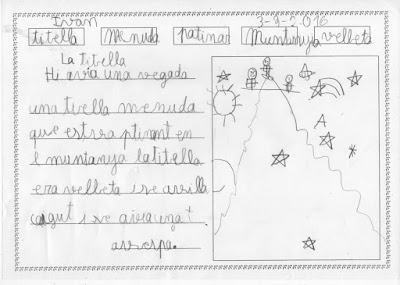 Ivan 3-2-2016
titella menuda patinar Muntanya velleta
La titella
Hi avia una vegada
una titella menuda
que estava ptinant en
l muntanya la titella
era velleta i se
caigut i se